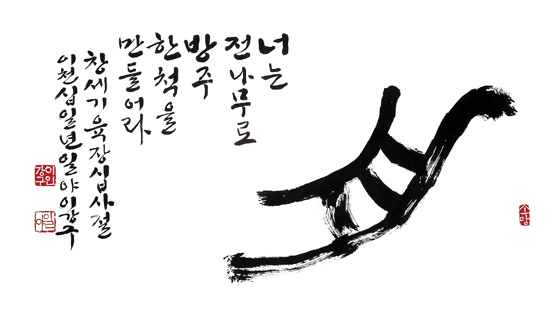 너는
전나무로
방주
한 척을
만들어라
창세기 육장 십사절
이천십일년 일야 이강구
소망
일야